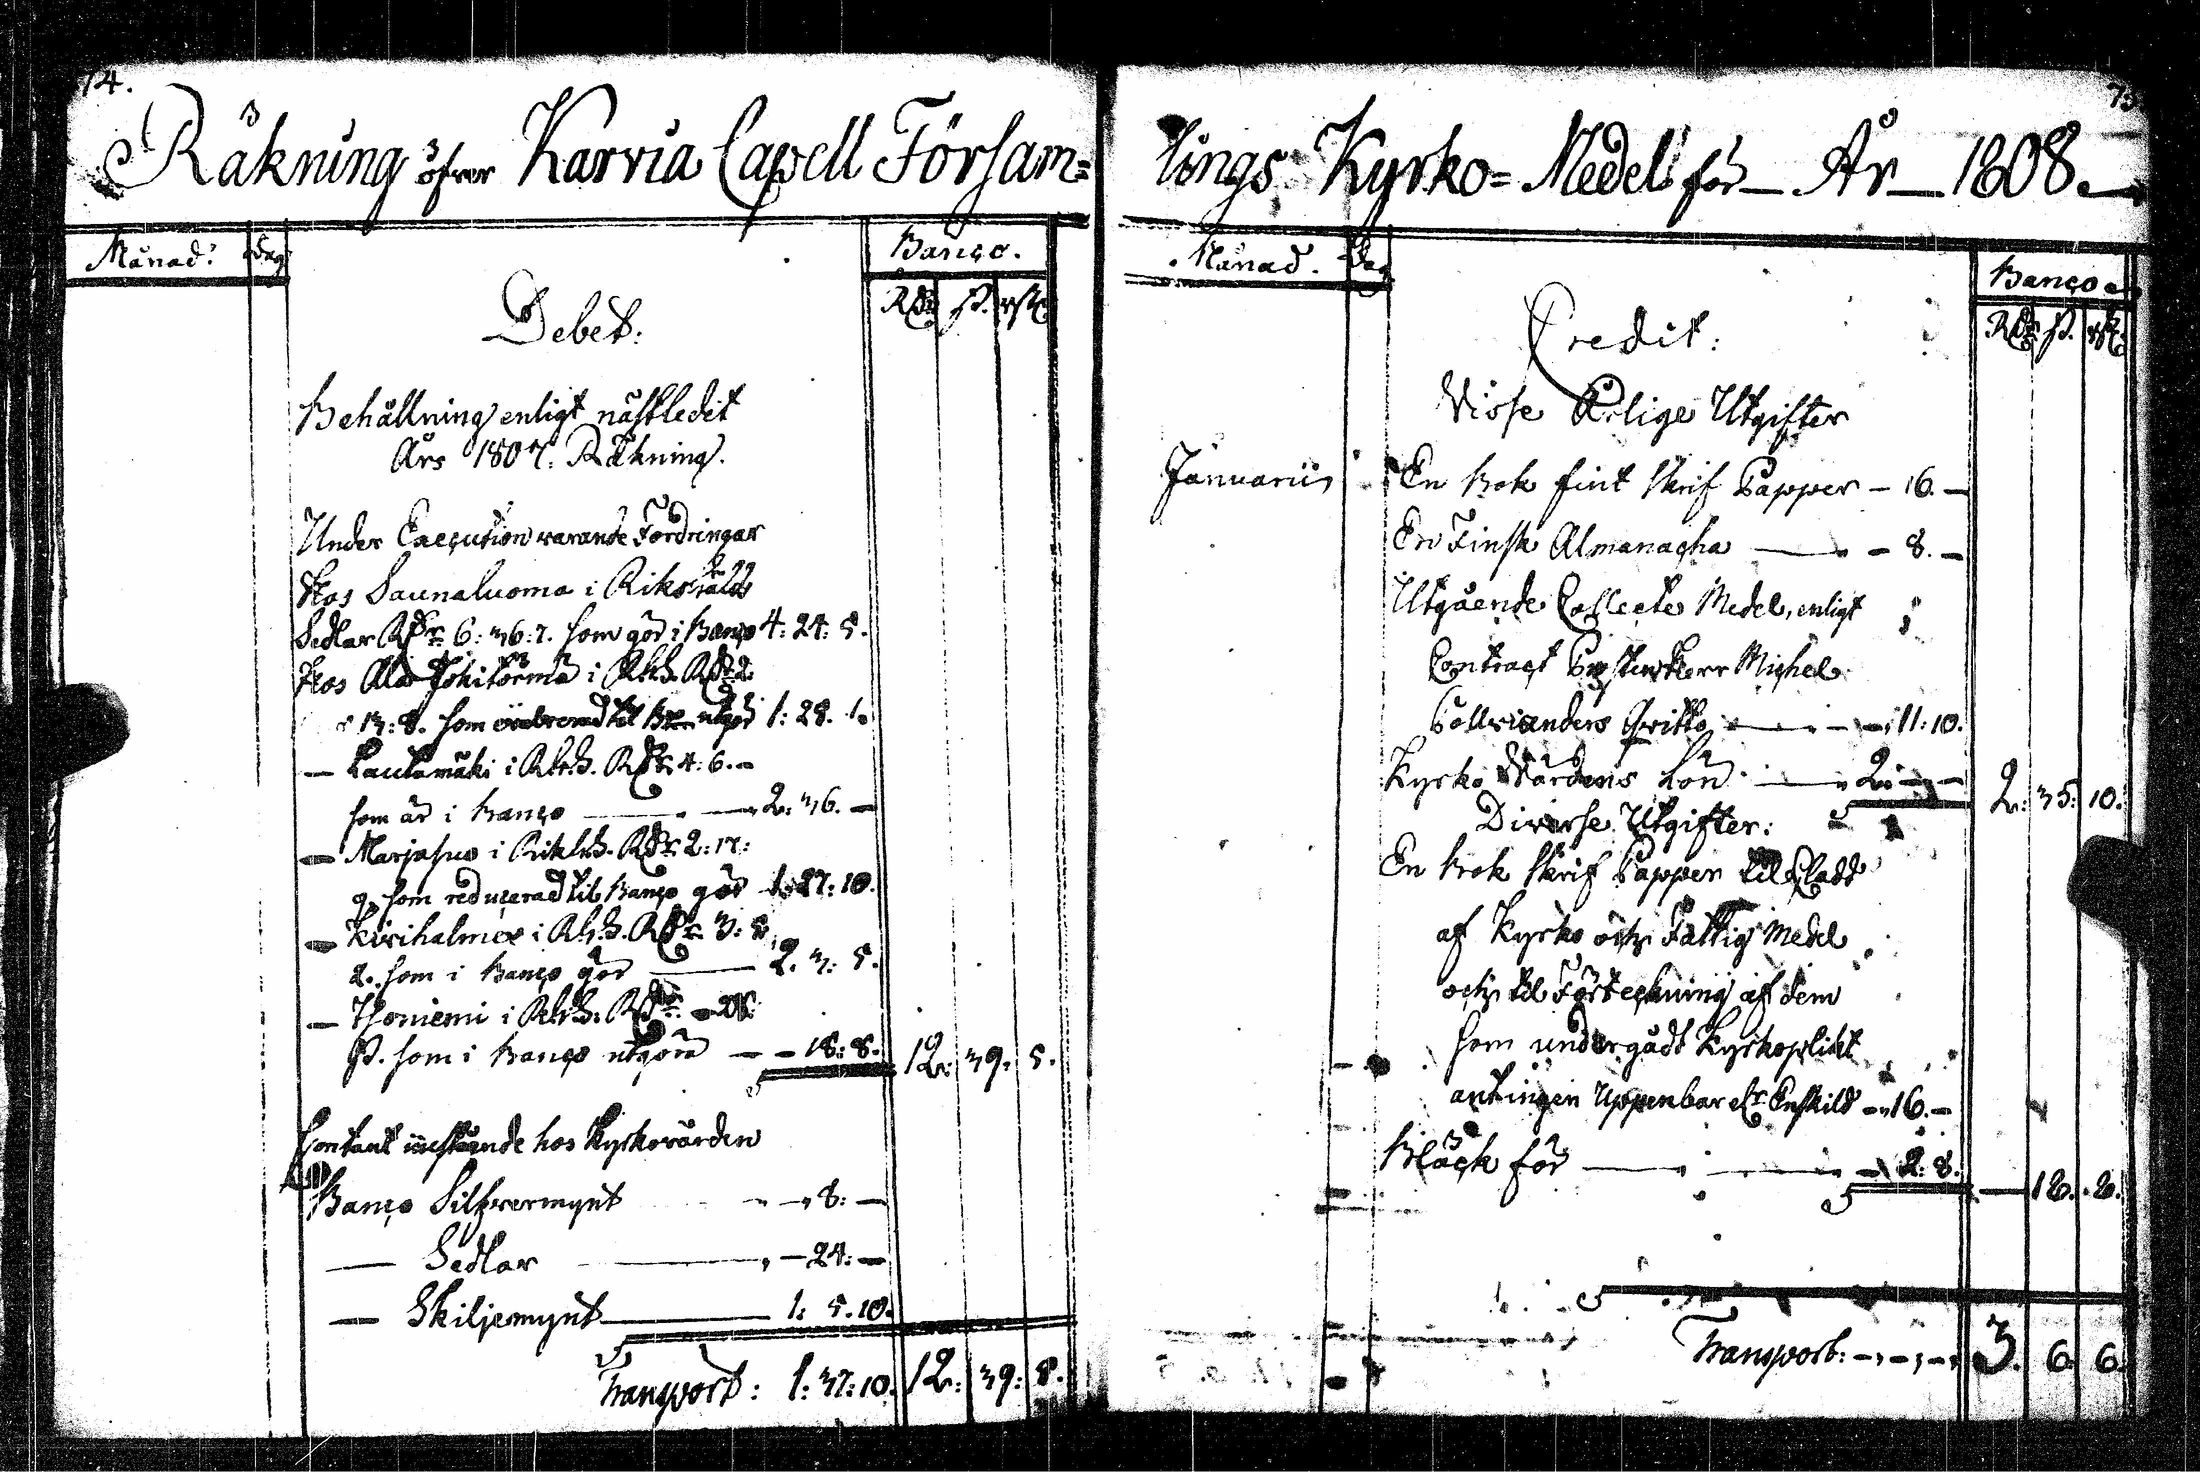 74.
Räkning öfver Karvia Capell Försam=
Månad: Dag Banco.
Rdr ß. rst.
Debet:
Behållning enligt nästledit
Års 1807. Räkning.
Under Execution varande Fordringar
Hos Saunaluoma i Riksgälds
Sedlar Rdr 6: 36: 7. som gör i Banco 4: 24: 5.
Hos Jokitörmä i Rdr 2
13: 8. som til Bco utgör 1: 28. 1.
— Lautamäki i Rdr 4: 6. —
som är i Banco — 2: 36. —
— Marjasuo i Rdr 2: 17:
9. som reducerad til Banco gör 1: 27: 10.
— Kirihalme i Rdr 3: 5
2. som i Banco gör — 2. 3: 5.
— Thoniemi i Rdr — 28:
ß. som i Banco utgöra — — 18: 8. 12: 39: 5.
Contant innestående hos Kyrkovärden
Banco Silfvermynt — 8: —
— Sedlar — 24: —
— Skiljemynt 1: 5. 10.
Transport: 1: 37: 10. 12: 39: 5.
75
lings Kyrko=Medel för — År — 1808. —
Månad. Dag Banco
Rdr ß. rst.
Credit:
Visse Årlige Utgifter
Januarii En Bok fint Skrif Papper — 16. —
En Finsk Almanacha — — 8. —
Utgående Collecte Medel, enligt
Contract Prosten Herr Michel
Pollvianders Qvitto — — 11: 10.
Kyrko Wärdens Lön — 2: — — 2: 35: 10.
Diverse Utgifter:
En Bok Skrif Papper til
af Kyrko och Fattig Medel
och til Förteckning af dem
som undergådt Kyrkoplikt
antingen Uppenbar elr Enskild — 16. —
Bläck för — — 2: 8. — 18. 8.
Transport: — — — 3. 6 6.